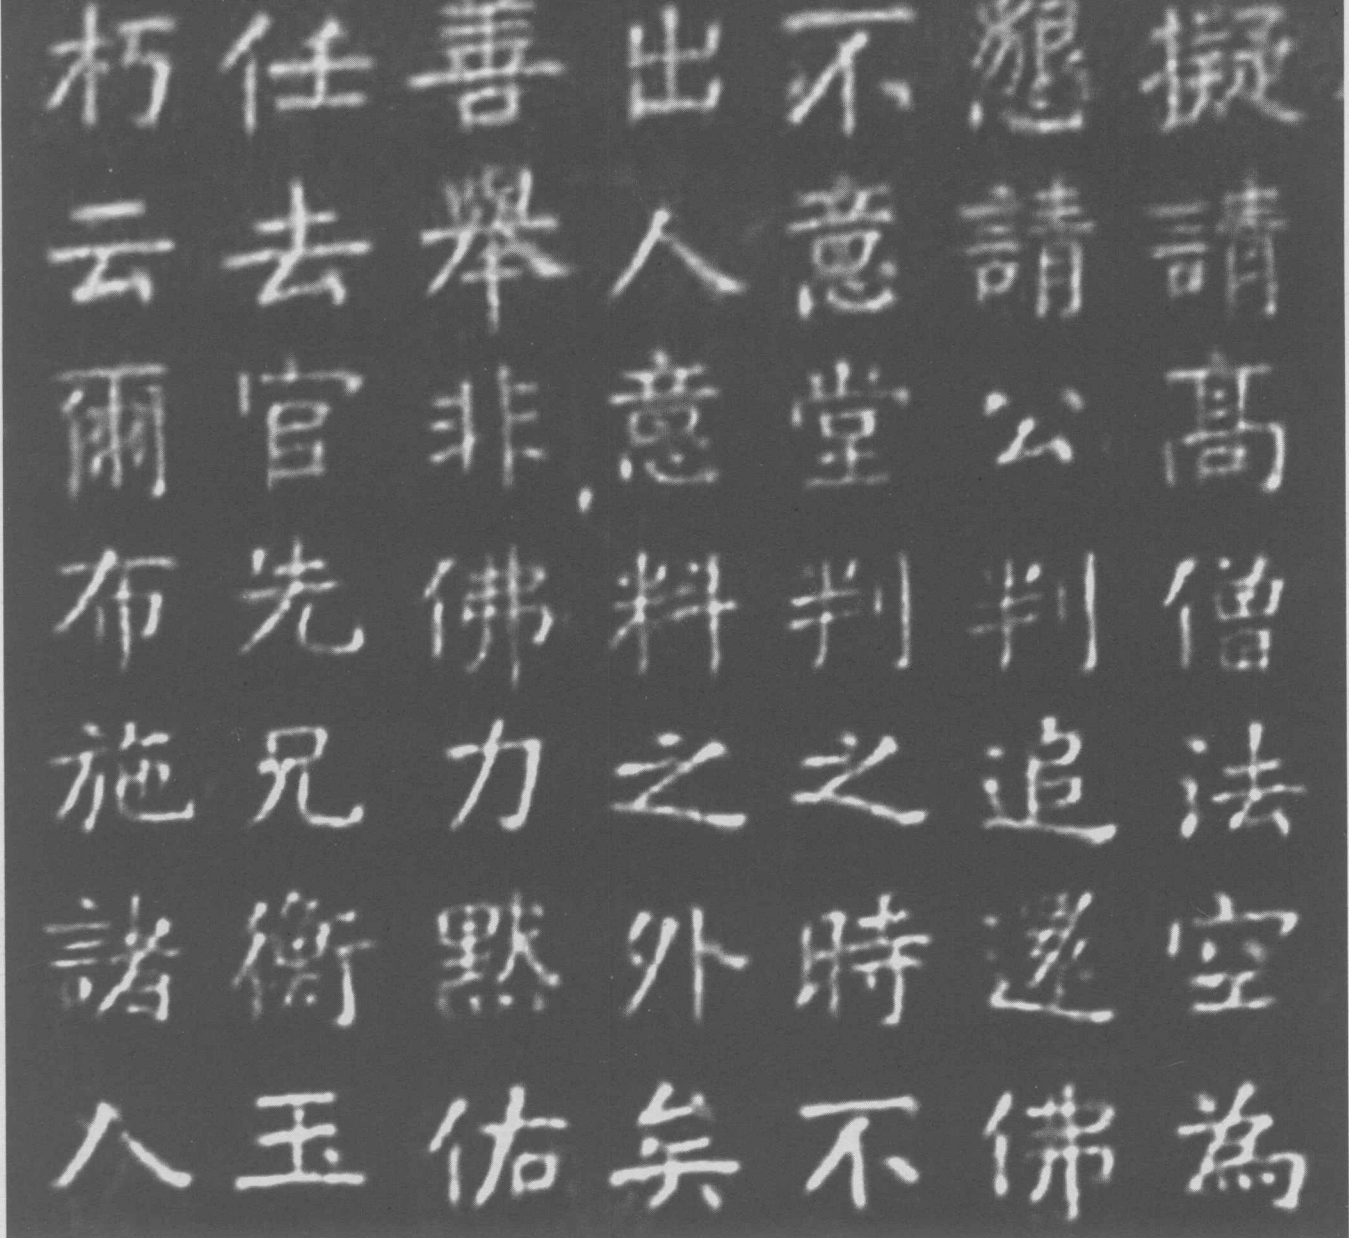 擬請高僧法空為
懇請公判追選佛
不意堂判之時不
出人意料之外矣
善舉非佛力默佑
任去官先兄衡玉
朽云爾布施諸人